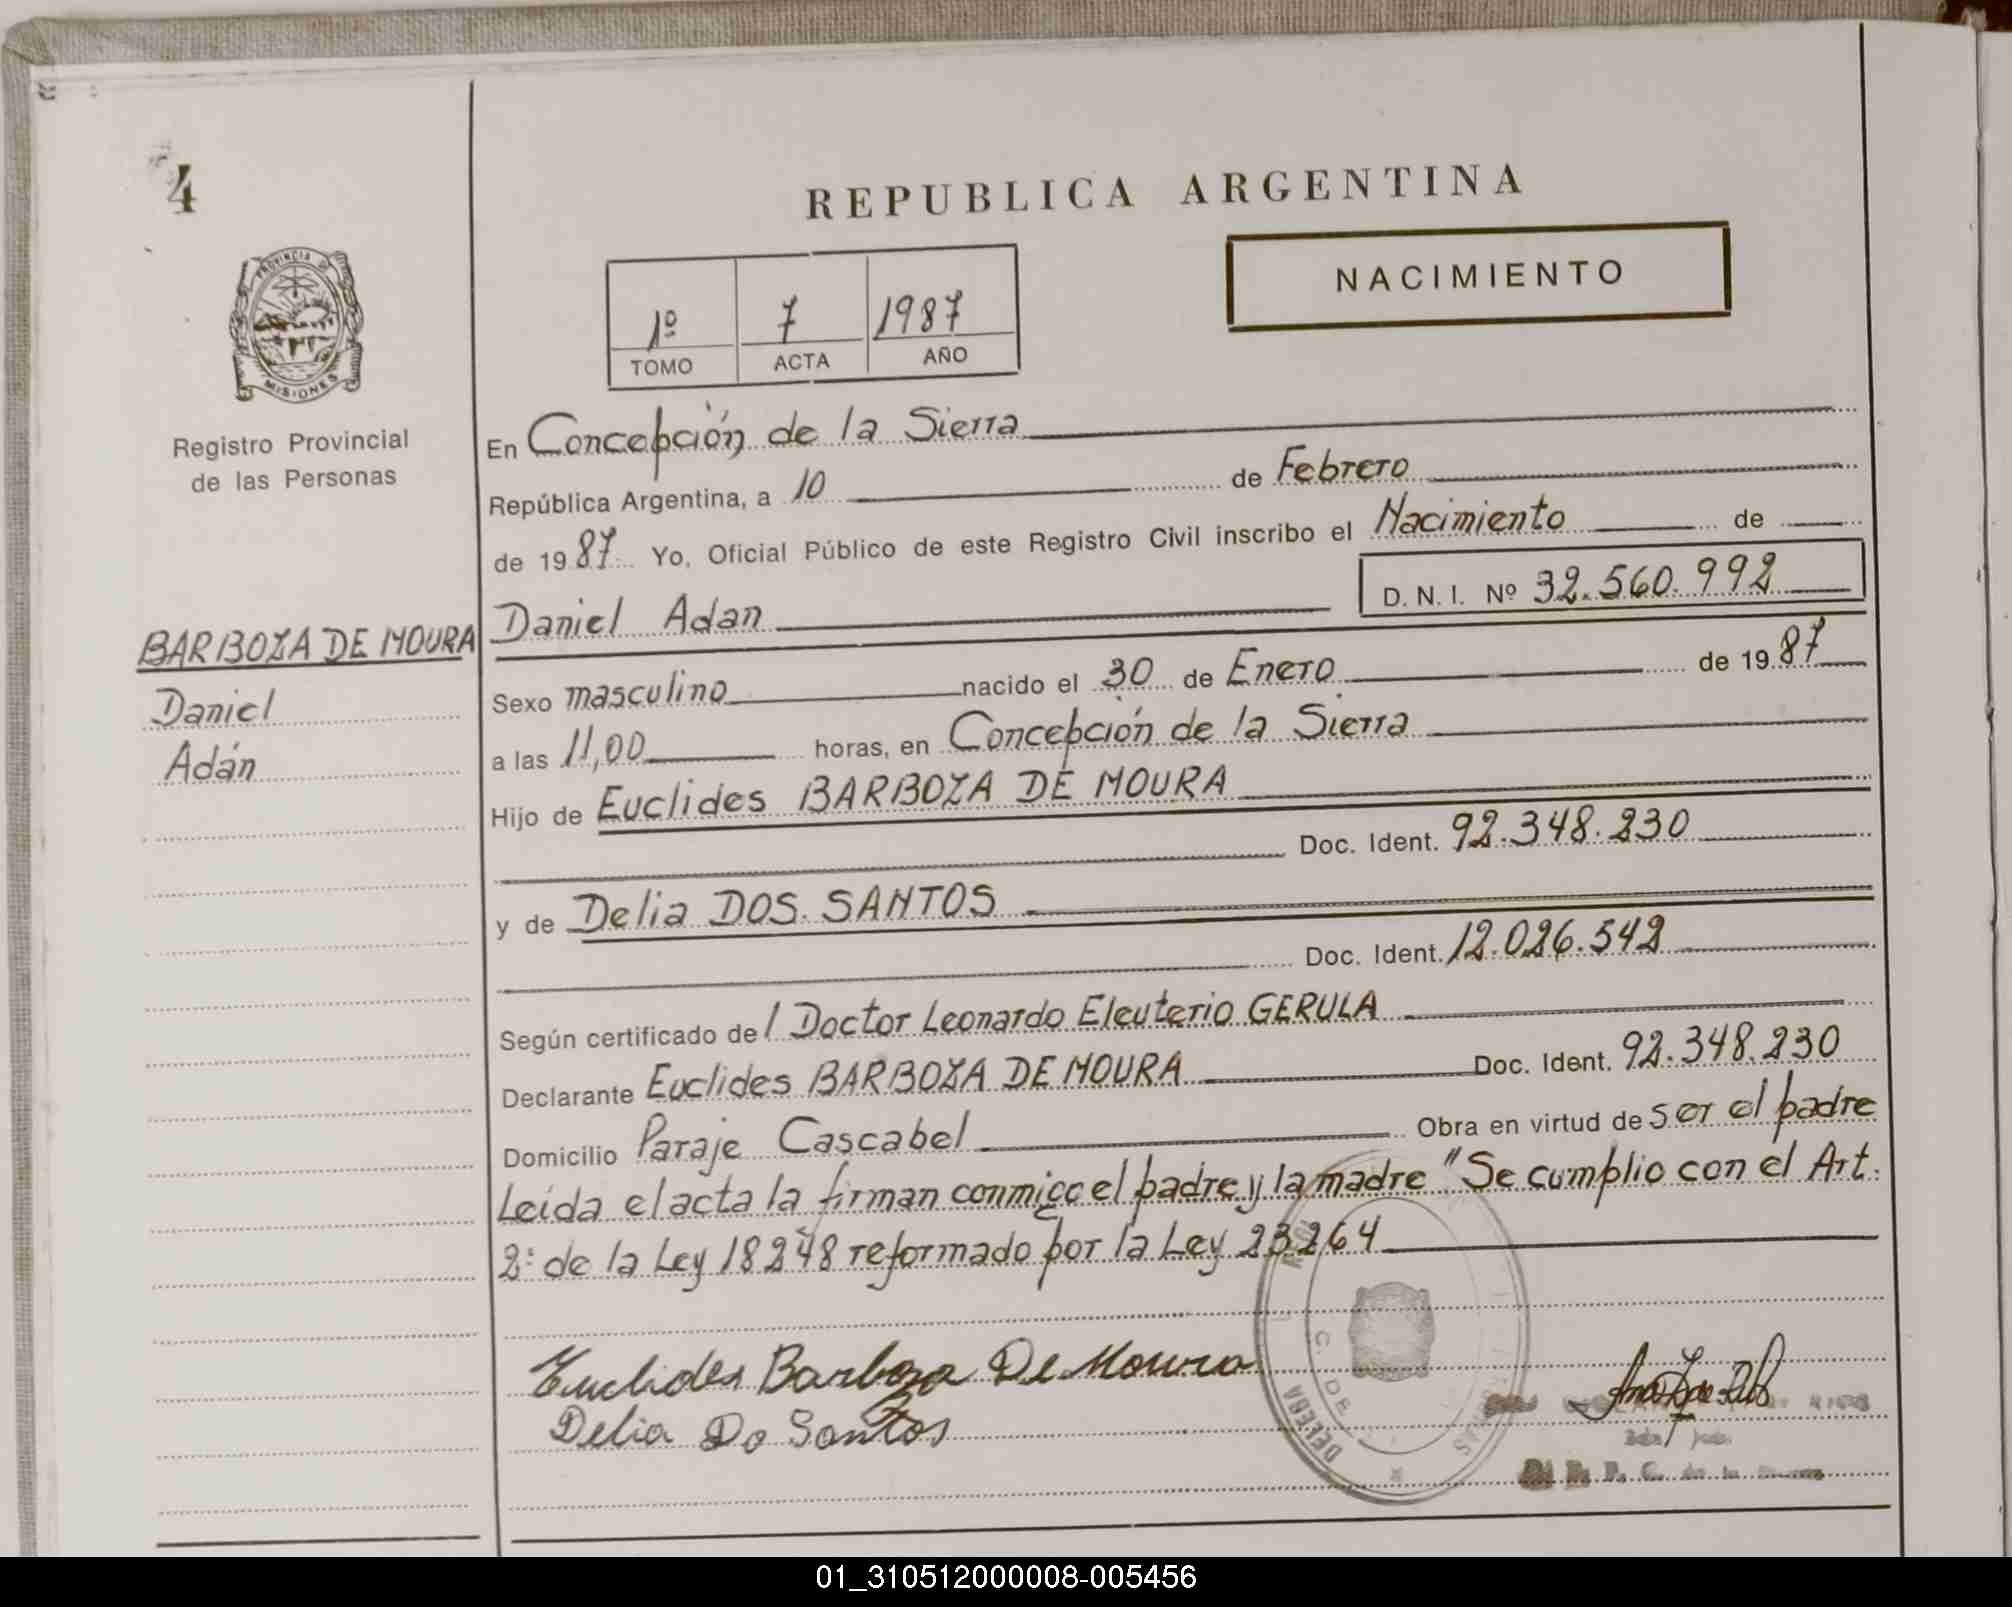 4
REPUBLICA ARGENTINA
NACIMIENTO
PROVINCIA DE
MISIONES
Registro Provincial
de las Personas
1º 7 1987
TOMO ACTA AÑO
En Concepción de la Sierra
República Argentina, a 10 de Febrero
de 1987 Yo, Oficial Público de este Registro Civil inscribo el Nacimiento de
D. N. I. Nº 32.560.992
Daniel Adan
BARBOZA DE MOURA
Daniel
Adán
Sexo masculino nacido el 30 de Enero de 1987
a las 11,00 horas, en Concepción de la Sierra
Hijo de Euclides BARBOZA DE MOURA
Doc. Ident. 92.348.230
y de Delia DOS. SANTOS
Doc. Ident. 12.026.542
Según certificado del Doctor Leonardo Eleuterio GERULA
Declarante Euclides BARBOZA DE MOURA Doc. Ident. 92.348.230
Domicilio Paraje Cascabel Obra en virtud de ser el padre
Leída el acta la firman conmigo el padre y la madre "Se cumplio con el Art.
2: de la Ley 18248 reformado por la Ley 23264
Euclides Barboza De Moura
Delia Do Santos
01_310512000008-005456